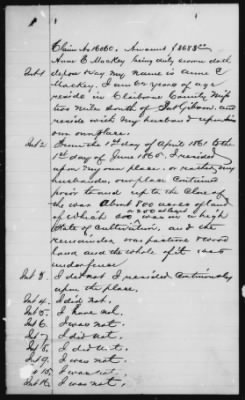 1
Claim No 16060. Amount $
Anne E Mackey being duly sworn doth
Int 1 depose & say my name is Anne E
Mackey. I am 62 years of age
reside in Claiborne County Miss
two miles south of Pt Gibson. and
reside with my husband upon his
own place.
Int 2 From the 1st day of April 1861 to the
1st day of June 1865. I resided
upon my own place. or rather my
husbands, our place contained
prior to and up to the close of
the war about 800 acres of land
of which was in a high
State of Cultivation, and the
remainder was pasture & wood
land and the whole of it was
under fence.
Int 3. I did not I resided continuously
upon the place.
Int 4. I did not.
Int 5. I have not.
Int 6. I was not.
Int 7. I did not.
Int 8. I did not.
Int 9. I was not.
" 10. I was not.
Int 11. I was not.